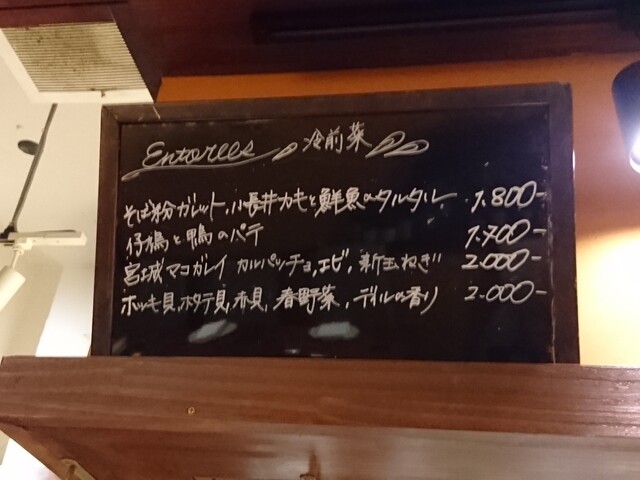 Entorees 冷前菜
そば粉ガレット、小長井カキと鮮魚のタルタル 1.800-
仔鳩と鴨のパテ 1.700-
宮城マコガレイ カルパッチョ,エビ,新玉ねぎ 2.000-
ホッキ貝,ホタテ貝,赤貝,春野菜,ディルの香り 2.000-